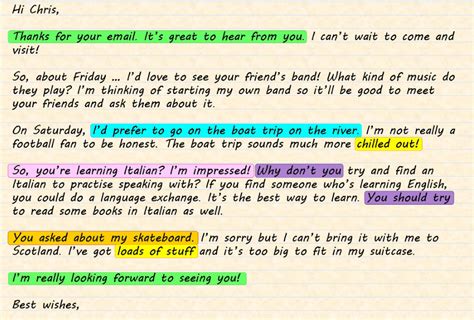 Hi Chris,
Thanks for your email. It's great to hear from you. I can't wait to come and
visit!
So, about Friday … I'd love to see your friend's band! What kind of music do
they play? I'm thinking of starting my own band so it'll be good to meet
your friends and ask them about it.
On Saturday, I'd prefer to go on the boat trip on the river. I'm not really a
football fan to be honest. The boat trip sounds much more chilled out!
So, you're learning Italian? I'm impressed! Why don't you try and find an
Italian to practise speaking with? If you find someone who's learning English,
you could do a language exchange. It's the best way to learn. You should try
to read some books in Italian as well.
You asked about my skateboard. I'm sorry but I can't bring it with me to
Scotland. I've got loads of stuff and it's too big to fit in my suitcase.
I'm really looking forward to seeing you!
Best wishes,